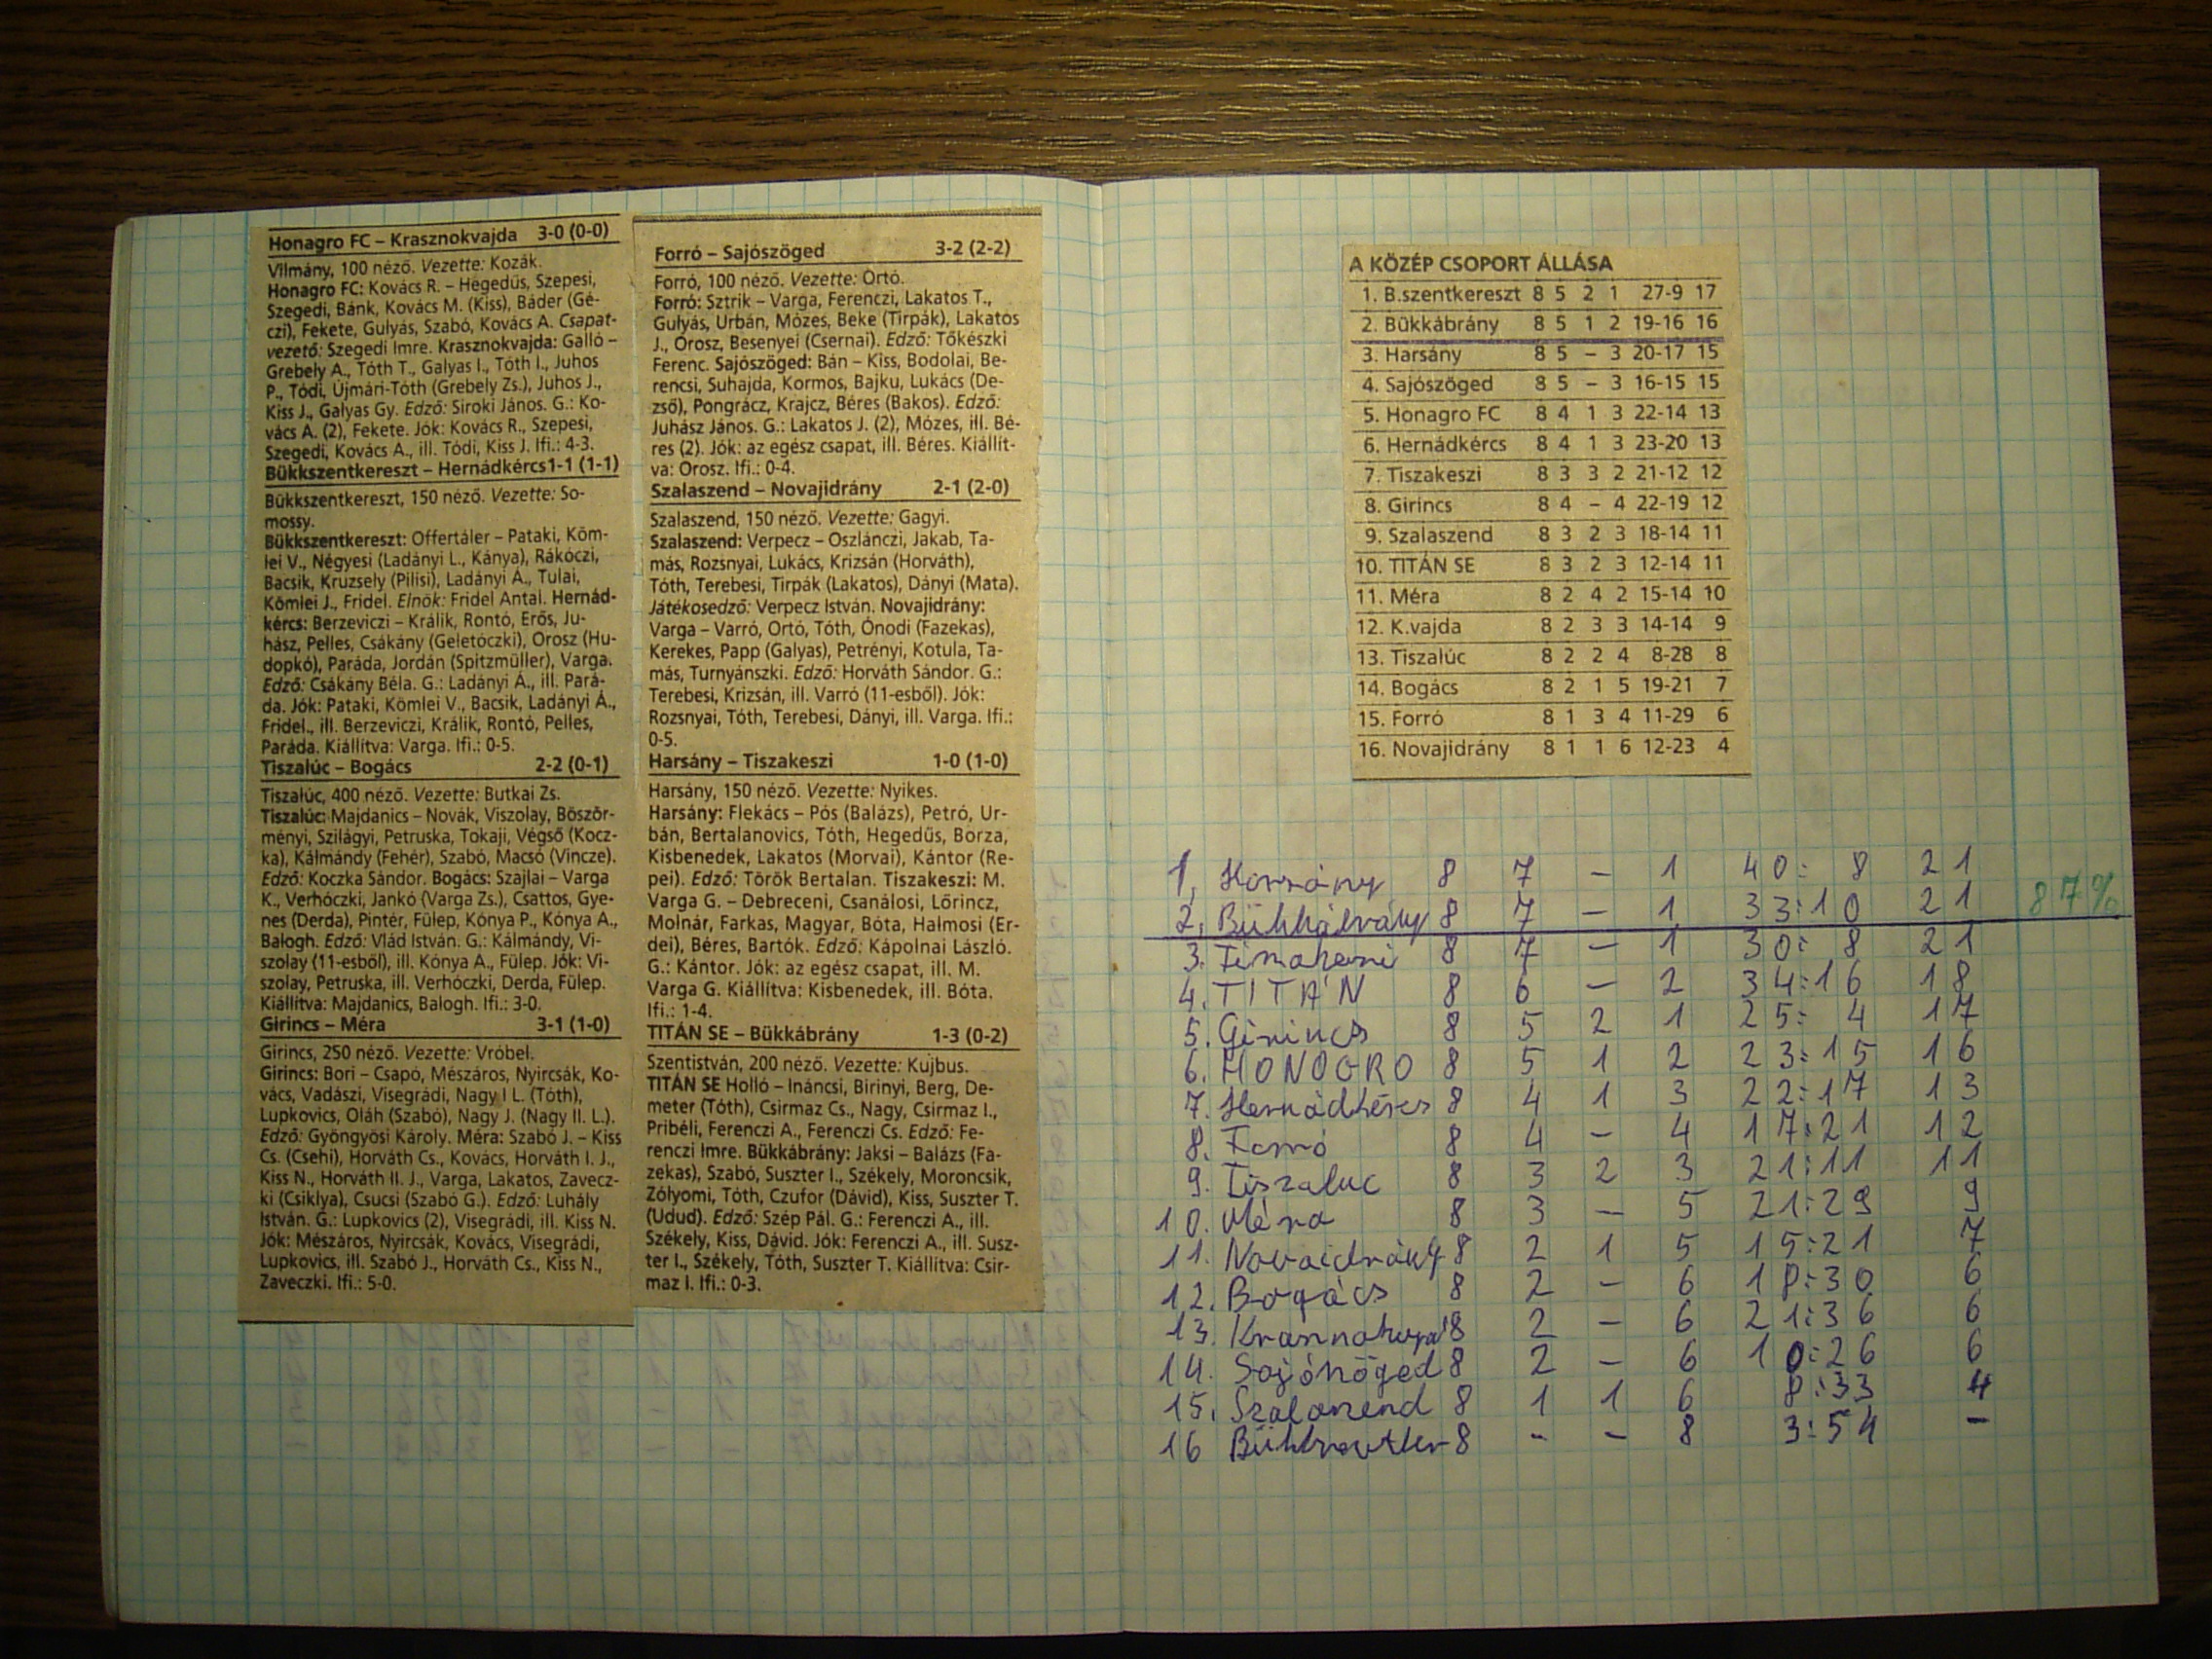 Honagro FC – Krasznokvajda 3-0 (0-0)
Vilmány, 100 néző. Vezette: Kozák.
Honagro FC: Kovács R. – Hegedűs, Szepesi,
Szegedi, Bánk, Kovács M. (Kiss), Báder (Gé-
czi), Fekete, Gulyás, Szabó, Kovács A. Csapat-
vezető: Szegedi Imre. Krasznokvajda: Galló –
Grebely A., Tóth T., Galyas I., Tóth I., Juhos
P., Tódi, Újmári-Tóth (Grebely Zs.), Juhos J.,
Kiss J., Galyas Gy. Edző: Siroki János. G.: Ko-
vács A. (2), Fekete. Jók: Kovács R., Szepesi,
Szegedi, Kovács A., ill. Tódi, Kiss J. Ifi.: 4-3.
Bükkszentkereszt – Hernádkércs1-1 (1-1)
Bükkszentkereszt, 150 néző. Vezette: So-
mossy.
Bükkszentkereszt: Offertáler – Pataki, Köm-
lei V., Négyesi (Ladányi L., Kánya), Rákóczi,
Bacsik, Kruzsely (Pilisi), Ladányi Á., Tulai,
Kömlei J., Fridel. Elnök: Fridel Antal. Hernád-
kércs: Berzeviczi – Králik, Rontó, Erős, Ju-
hász, Pelles, Csákány (Geletóczki), Orosz (Hu-
dopkó), Paráda, Jordán (Spitzmüller), Varga.
Edző: Csákány Béla. G.: Ladányi Á., ill. Pará-
da. Jók: Pataki, Kömlei V., Bacsik, Ladányi Á.,
Fridel., ill. Berzeviczi, Králik, Rontó, Pelles,
Paráda. Kiállítva: Varga. Ifi.: 0-5.
Tiszalúc – Bogács 2-2 (0-1)
Tiszalúc, 400 néző. Vezette: Butkai Zs.
Tiszalúc: Majdanics – Novák, Viszolay, Böször-
ményi, Szilágyi, Petruska, Tokaji, Végső (Kocz-
ka), Kálmándy (Fehér), Szabó, Macsó (Vincze).
Edző: Koczka Sándor. Bogács: Szajlai – Varga
K., Verhóczki, Jankó (Varga Zs.), Csattos, Gye-
nes (Derda), Pintér, Fülep, Kónya P., Kónya A.,
Balogh. Edző: Vlád István. G.: Kálmándy, Vi-
szolay (11-esből), ill. Kónya A., Fülep. Jók: Vi-
szolay, Petruska, ill. Verhóczki, Derda, Fülep.
Kiállítva: Majdanics, Balogh. Ifi.: 3-0.
Girincs – Méra 3-1 (1-0)
Girincs, 250 néző. Vezette: Vróbel.
Girincs: Bori – Csapó, Mészáros, Nyircsák, Ko-
vács, Vadászi, Visegrádi, Nagy I L. (Tóth),
Lupkovics, Oláh (Szabó), Nagy J. (Nagy II. L.).
Edző: Gyöngyösi Károly. Méra: Szabó J. – Kiss
Cs. (Csehi), Horváth Cs., Kovács, Horváth I. J.,
Kiss N., Horváth II. J., Varga, Lakatos, Zavecz-
ki (Csiklya), Csucsi (Szabó G.). Edző: Luhály
István. G.: Lupkovics (2), Visegrádi, ill. Kiss N.
Jók: Mészáros, Nyircsák, Kovács, Visegrádi,
Lupkovics, ill. Szabó J., Horváth Cs., Kiss N.,
Zaveczki. Ifi.: 5-0.
Forró – Sajószöged 3-2 (2-2)
Forró, 100 néző. Vezette: Ortó.
Forró: Sztrik – Varga, Ferenczi, Lakatos T.,
Gulyás, Urbán, Mózes, Beke (Tirpák), Lakatos
J., Orosz, Besenyei (Csernai). Edző: Tőkészki
Ferenc. Sajószöged: Bán – Kiss, Bodolai, Be-
rencsi, Suhajda, Kormos, Bajku, Lukács (De-
zső), Pongrácz, Krajcz, Béres (Bakos). Edző:
Juhász János. G.: Lakatos J. (2), Mózes, ill. Bé-
res (2). Jók: az egész csapat, ill. Béres. Kiállít-
va: Orosz. Ifi.: 0-4.
Szalaszend – Novajidrány 2-1 (2-0)
Szalaszend, 150 néző. Vezette: Gagyi.
Szalaszend: Verpecz – Oszlánczi, Jakab, Ta-
más, Rozsnyai, Lukács, Krizsán (Horváth),
Tóth, Terebesi, Tirpák (Lakatos), Dányi (Mata).
Játékosedző: Verpecz István. Novajidrány:
Varga – Varró, Ortó, Tóth, Ónodi (Fazekas),
Kerekes, Papp (Galyas), Petrényi, Kotula, Ta-
más, Turnyánszki. Edző: Horváth Sándor. G.:
Terebesi, Krizsán, ill. Varró (11-esből). Jók:
Rozsnyai, Tóth, Terebesi, Dányi, ill. Varga. Ifi.:
0-5.
Harsány – Tiszakeszi 1-0 (1-0)
Harsány, 150 néző. Vezette: Nyikes.
Harsány: Flekács – Pós (Balázs), Petró, Ur-
bán, Bertalanovics, Tóth, Hegedűs, Borza,
Kisbenedek, Lakatos (Morvai), Kántor (Re-
pei). Edző: Török Bertalan. Tiszakeszi: M.
Varga G. – Debreceni, Csanálosi, Lőrincz,
Molnár, Farkas, Magyar, Bóta, Halmosi (Er-
dei), Béres, Bartók. Edző: Kápolnai László.
G.: Kántor. Jók: az egész csapat, ill. M.
Varga G. Kiállítva: Kisbenedek, ill. Bóta.
Ifi.: 1-4.
TITÁN SE – Bükkábrány 1-3 (0-2)
Szentistván, 200 néző. Vezette: Kujbus.
TITÁN SE Holló – Ináncsi, Birinyi, Berg, De-
meter (Tóth), Csirmaz Cs., Nagy, Csirmaz I.,
Pribéli, Ferenczi A., Ferenczi Cs. Edző: Fe-
renczi Imre. Bükkábrány: Jaksi – Balázs (Fa-
zekas), Szabó, Suszter I., Székely, Moroncsik,
Zólyomi, Tóth, Czufor (Dávid), Kiss, Suszter T.
(Udud). Edző: Szép Pál. G.: Ferenczi A., ill.
Székely, Kiss, Dávid. Jók: Ferenczi A., ill. Susz-
ter I., Székely, Tóth, Suszter T. Kiállítva: Csir-
maz I. Ifi.: 0-3.
A KÖZÉP CSOPORT ÁLLÁSA
1. B.szentkereszt 8 5 2 1 27-9 17
2. Bükkábrány 8 5 1 2 19-16 16
3. Harsány 8 5 – 3 20-17 15
4. Sajószöged 8 5 – 3 16-15 15
5. Honagro FC 8 4 1 3 22-14 13
6. Hernádkércs 8 4 1 3 23-20 13
7. Tiszakeszi 8 3 3 2 21-12 12
8. Girincs 8 4 – 4 22-19 12
9. Szalaszend 8 3 2 3 18-14 11
10. TITÁN SE 8 3 2 3 12-14 11
11. Méra 8 2 4 2 15-14 10
12. K.vajda 8 2 3 3 14-14 9
13. Tiszalúc 8 2 2 4 8-28 8
14. Bogács 8 2 1 5 19-21 7
15. Forró 8 1 3 4 11-29 6
16. Novajidrány 8 1 1 6 12-23 4
1. Harsány 8 7 – 1 40: 8 21
2. Bükkábrány 8 7 – 1 33:10 21 87%
3. 8 7 – 1 30: 8 21
4. TITÁN 8 6 – 2 34:16 18
5. Girincs 8 5 2 1 25: 4 17
6. HONOGRO 8 5 1 2 23:15 16
7. Hernádkércs 8 4 1 3 22:17 13
8. Forró 8 4 – 4 17:21 12
9. Tiszaluc 8 3 2 3 21:11 11
10. Méra 8 3 – 5 21:29 9
11. Novaidrány 8 2 1 5 15:21 7
12. Bogács 8 2 – 6 18:30 6
13. 8 2 – 6 21:36 6
14. Sajószöged 8 2 – 6 10:26 6
15. Szalaszend 8 1 1 6 8:33 4
16 8 – – 8 3:54 –